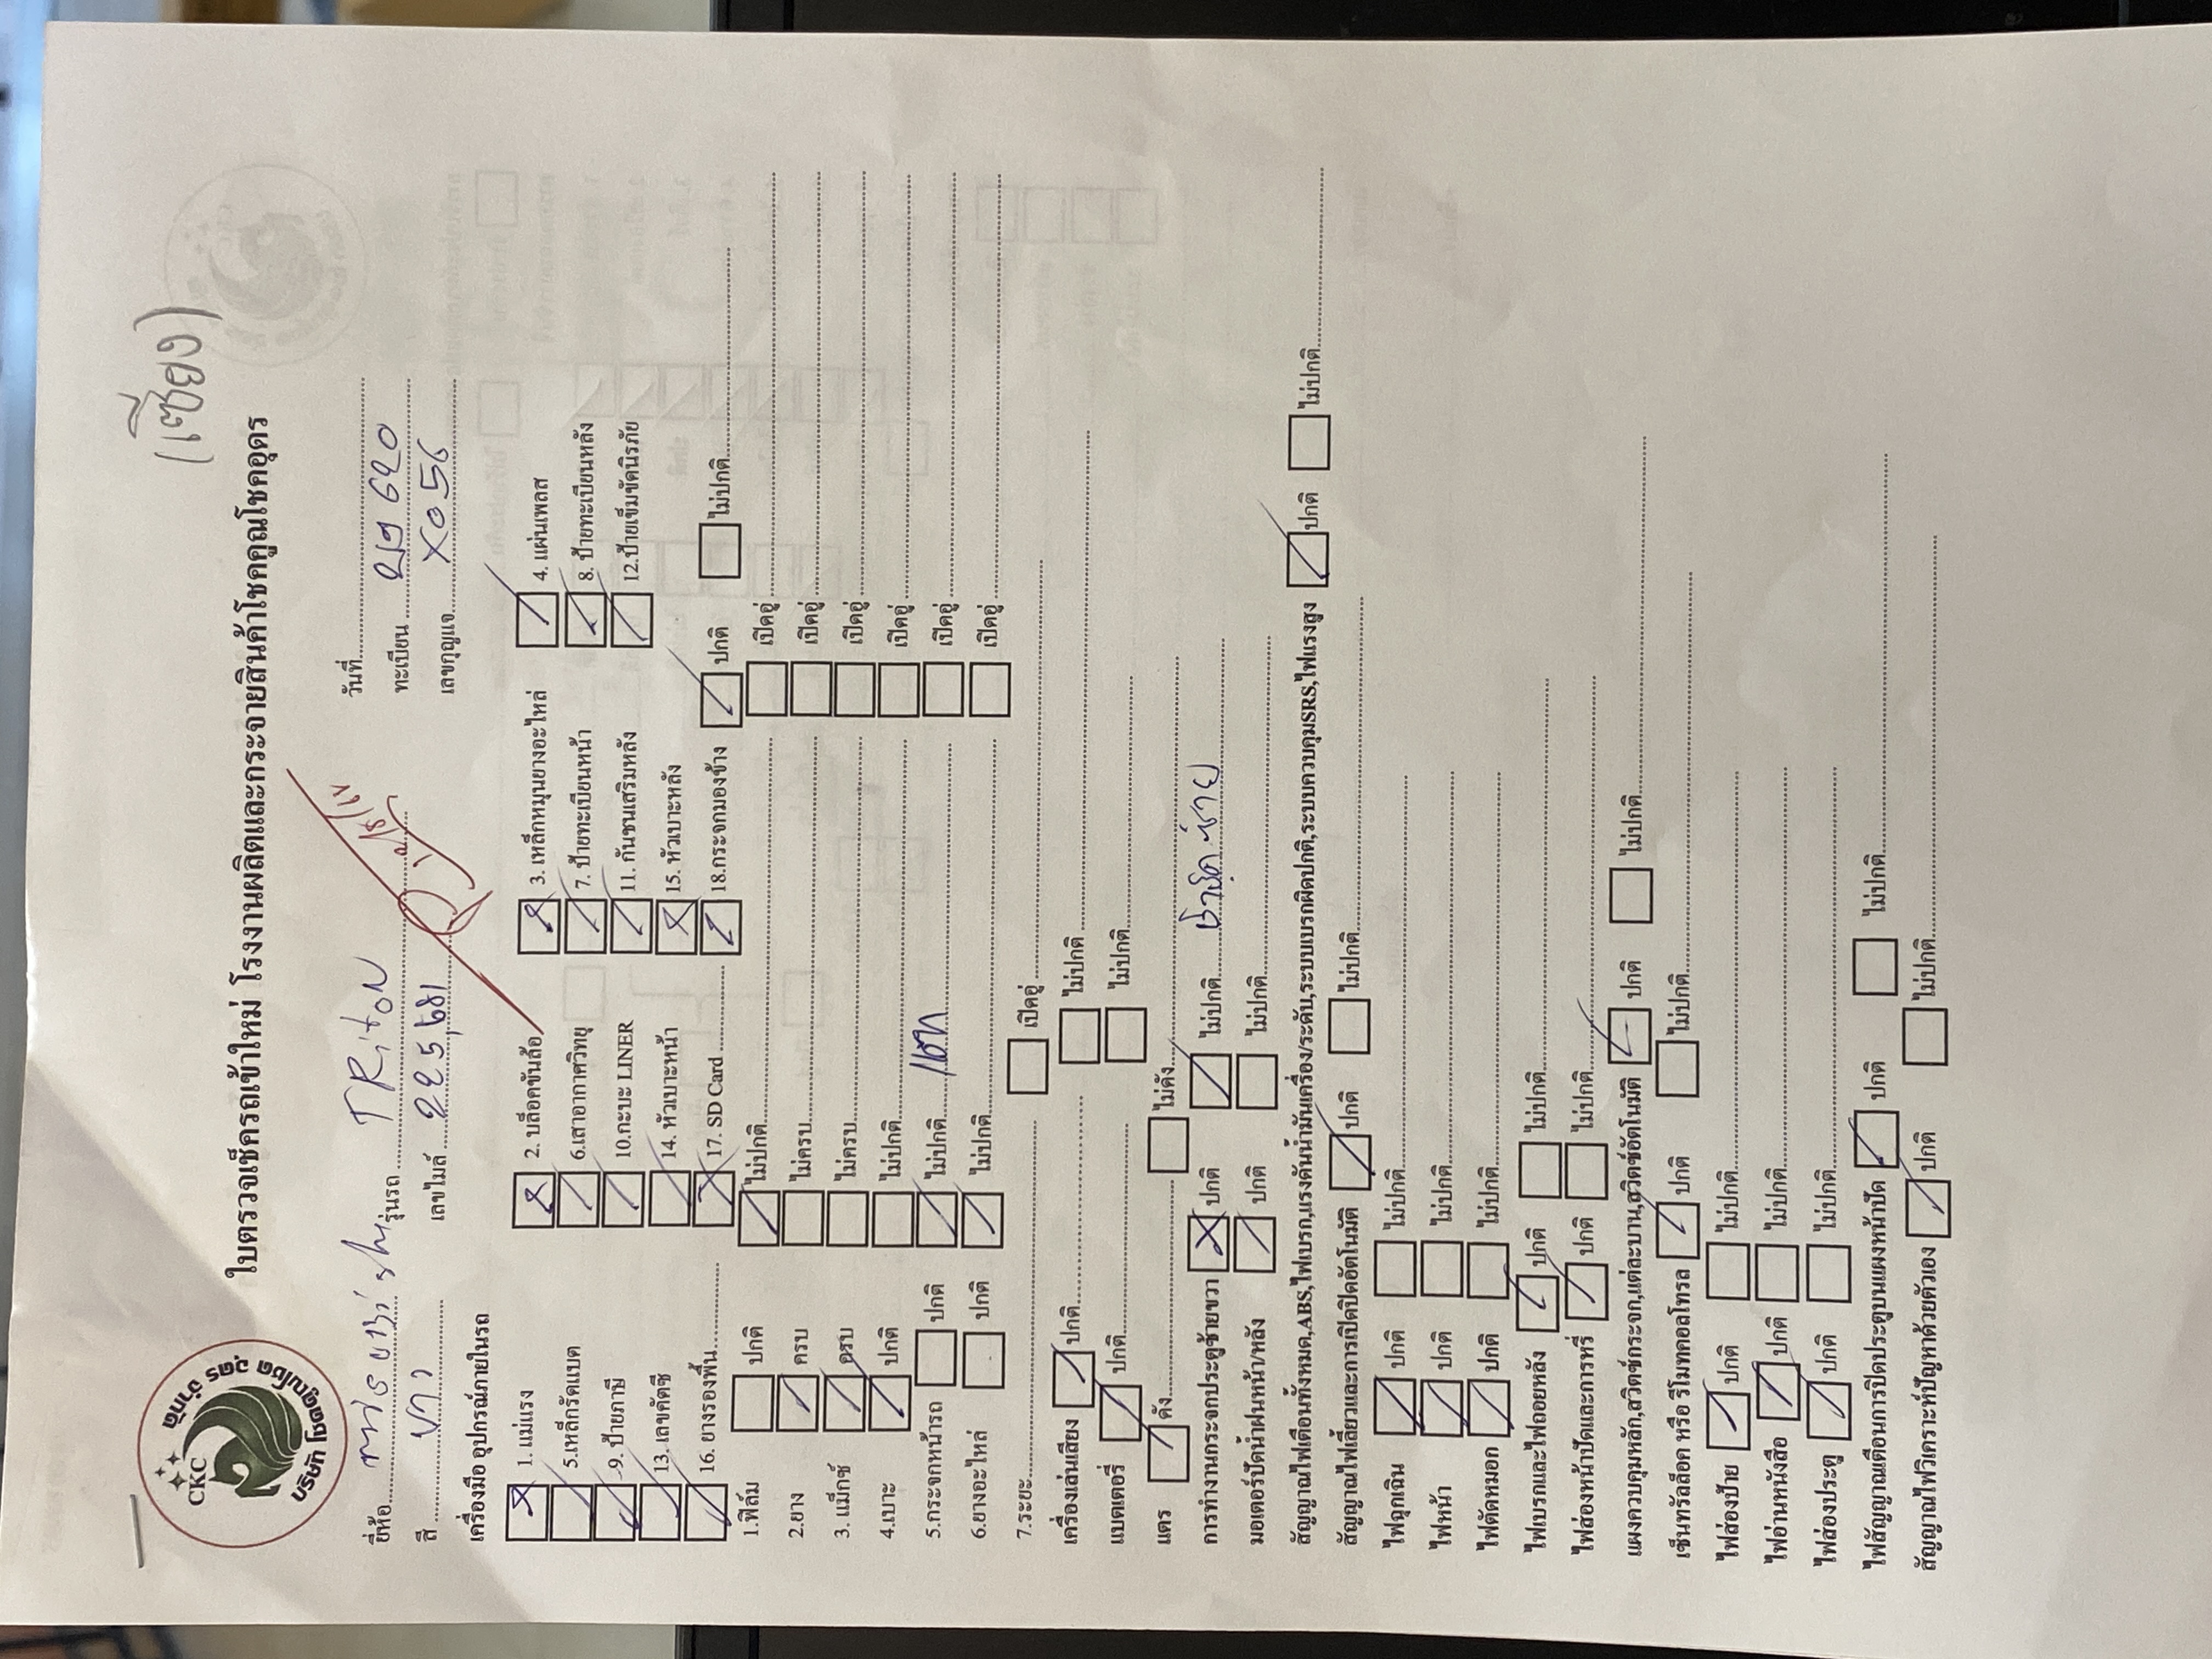 (เซียง)
CKC
บริษัท โชคคูณโชค อุดร จำกัด
ใบตรวจเช็ครถเข้าใหม่ โรงงานผลิตและกระจายสินค้าโชคคูณโชคอุดร
ยี่ห้อ รุ่นรถ TRitoN วันที่
สี ขาว เลขไมล์ 225,681 ทะเบียน 620
เลขกุญแจ X056
เครื่องมือ อุปกรณ์ภายในรถ
1. แม่แรง 2. บล็อคขันล้อ 3. เหล็กหมุนยางอะไหล่ 4. แผ่นเพลส
5.เหล็กรัดแบต 6.เสาอากาศวิทยุ 7. ป้ายทะเบียนหน้า 8. ป้ายทะเบียนหลัง
9. ป้ายภาษี 10.กะบะ LINER 11. กันชนเสริมหลัง 12.ป้ายเข็มขัดนิรภัย
13. เลขคัตซี 14. หัวเบาะหน้า 15. หัวเบาะหลัง
16. ยางรองพื้น 17. SD Card 18.กระจกมองข้าง ปกติ ไม่ปกติ
1.ฟิล์ม ปกติ ไม่ปกติ เปิดอู่
2.ยาง ครบ ไม่ครบ เปิดอู่
3. แม็กซ์ ครบ ไม่ครบ เปิดอู่
4.เบาะ ปกติ ไม่ปกติ เปิดอู่
5.กระจกหน้ารถ ปกติ ไม่ปกติ แตก เปิดอู่
6.ยางอะไหล่ ปกติ ไม่ปกติ เปิดอู่
7.ระยะ เปิดอู่
เครื่องเล่นเสียง ปกติ ไม่ปกติ
แบตเตอรี่ ปกติ ไม่ปกติ
แตร ดัง ไม่ดัง
การทำงานกระจกประตูซ้ายขวา ปกติ ไม่ปกติ
มอเตอร์ปัดน้ำฝนหน้า/หลัง ปกติ ไม่ปกติ
สัญญาณไฟเตือนทั้งหมด,ABS,ไฟเบรก,แรงดันน้ำมันเครื่อง/ระดับ,ระบบเบรกผิดปกติ,ระบบควบคุมSRS,ไฟแรงสูง ปกติ ไม่ปกติ
สัญญาณไฟเลี้ยวและการเปิดปิดอัตโนมัติ ปกติ ไม่ปกติ
ไฟฉุกเฉิน ปกติ ไม่ปกติ
ไฟหน้า ปกติ ไม่ปกติ
ไฟตัดหมอก ปกติ ไม่ปกติ
ไฟเบรกและไฟถอยหลัง ปกติ ไม่ปกติ
ไฟส่องหน้าปัดและการหรี่ ปกติ ไม่ปกติ
แผงควบคุมหลัก,สวิตซ์กระจก,แต่ละบาน,สวิตซ์อัตโนมัติ ปกติ ไม่ปกติ
เซ็นทรัลล็อค หรือ รีโมทคอลโทรล ปกติ ไม่ปกติ
ไฟส่องป้าย ปกติ ไม่ปกติ
ไฟอ่านหนังสือ ปกติ ไม่ปกติ
ไฟส่องประตู ปกติ ไม่ปกติ
ไฟสัญญาณเตือนการปิดประตูบนแผงหน้าปัด ปกติ ไม่ปกติ
สัญญาณไฟวิเคราะห์ปัญหาด้วยตัวเอง ปกติ ไม่ปกติ